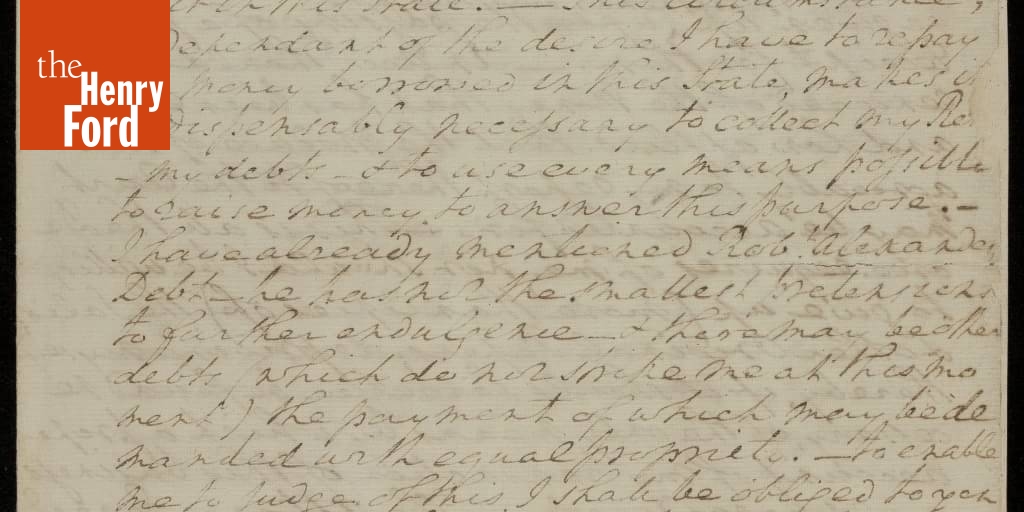 the
Henry
Ford
this State. — This circumstance,
dependant of the desire I have to repay
money borrowed in this State, makes it
dispensably necessary to collect my Re
– my debts – & to use every means possible
to raise money to answer this purpose. –
I have already mentioned Robt. Alexander
Debt – he has not the smallest pretensions
to further endulgence – & there may be other
debts (which do not strike me at this mo
ment) the payment of which may be de
manded with equal propriety. – To enable
me to judge of this, I shall be obliged to you